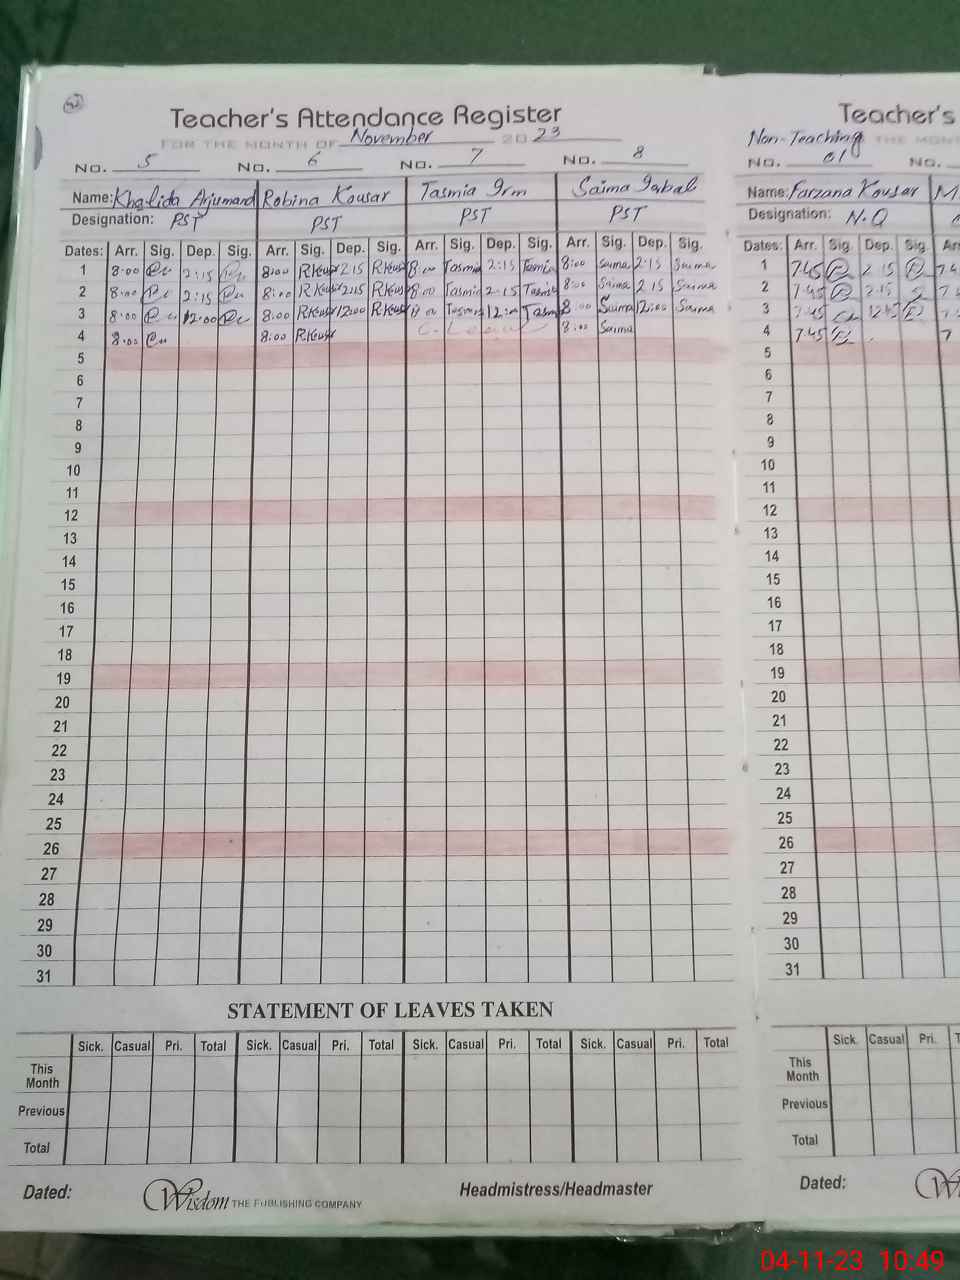 Teacher's Attendance Register
FOR THE MONTH OF November 2023
No. 5 No. 6 No. 7 No. 8
Name: Khalida Arjumand Robina Kousar Tasmia Irm Saima Iqbal
Designation: PST PST PST PST
Dates: Arr. Sig. Dep. Sig. Arr. Sig. Dep. Sig. Arr. Sig. Dep. Sig. Arr. Sig. Dep. Sig.
1 8:00 2:15 8:00 RKousr 2:15 RKousr 8:00 Tasmia 2:15 Tasmia 8:00 Saima 2:15 Saima
2 8:00 2:15 8:00 RKousr 2:15 RKousr 8:00 Tasmia 2:15 Tasmia 8:00 Saima 2:15 Saima
3 8:00 12:00 8:00 RKousr 12:00 RKousr 8:00 Tasmia 12:00 Tasmia 8:00 Saima 12:00 Saima
4 8:00 8:00 RKousr C. Leave 8:00 Saima
5
6
7
8
9
10
11
12
13
14
15
16
17
18
19
20
21
22
23
24
25
26
27
28
29
30
31
STATEMENT OF LEAVES TAKEN
Sick. Casual Pri. Total Sick. Casual Pri. Total Sick. Casual Pri. Total Sick. Casual Pri. Total
This Month
Previous
Total
Dated: Wisdom THE PUBLISHING COMPANY Headmistress/Headmaster
Teacher's
Non-Teaching THE MONT
No. 01 No.
Name: Farzana Kousar M
Designation: N.Q
Dates: Arr. Sig. Dep. Sig. Arr
1 7:45 2:15 7:4
2 7:45 2:15 7:4
3 7:45 12:15 7:4
4 7:45 7
5
6
7
8
9
10
11
12
13
14
15
16
17
18
19
20
21
22
23
24
25
26
27
28
29
30
31
Sick. Casual Pri. T
This Month
Previous
Total
Dated: Wi
04-11-23 10:49